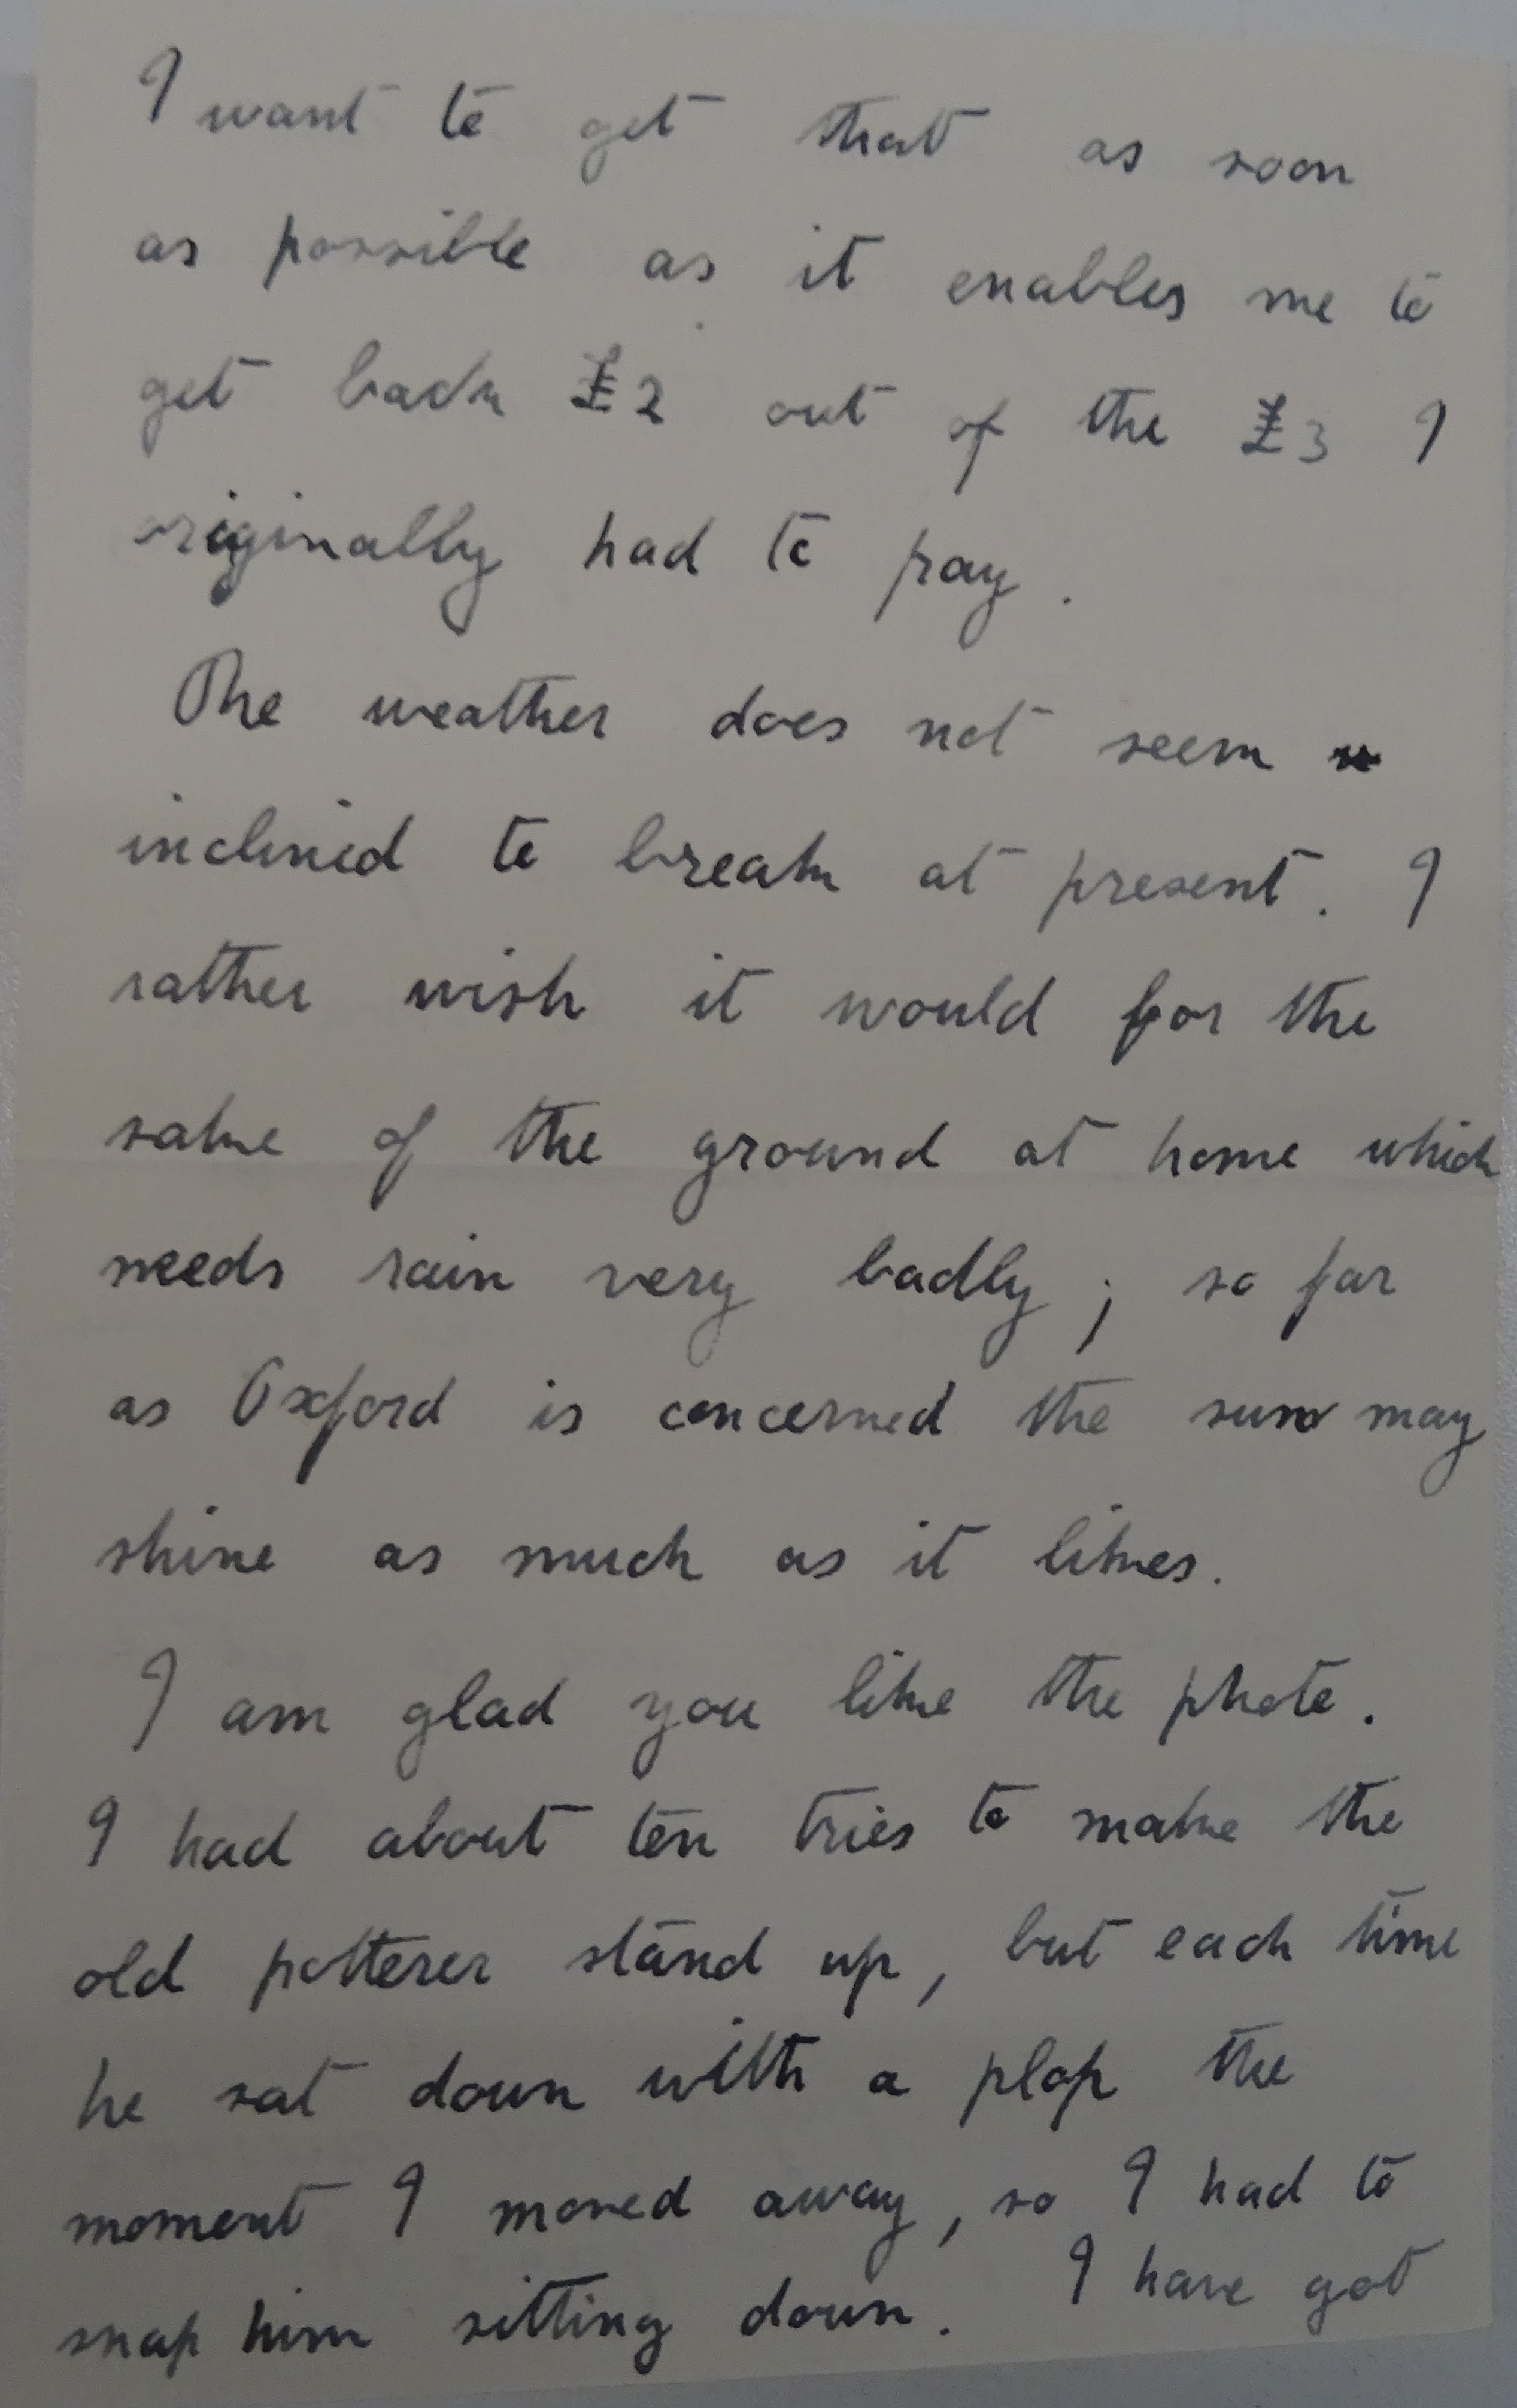 I want to get that as soon
as possible as it enables me to
get back £2 out of the £3 I
originally had to pay.
The weather does not seem
inclined to break at present. I
rather wish it would for the
sake of the ground at home which
needs rain very badly; so far
as Oxford is concerned the sun may
shine as much as it likes.
I am glad you like the photo.
I had about ten tries to make the
old potterer stand up, but each time
he sat down with a plop the
moment I moved away, so I had to
snap him sitting down. I have got